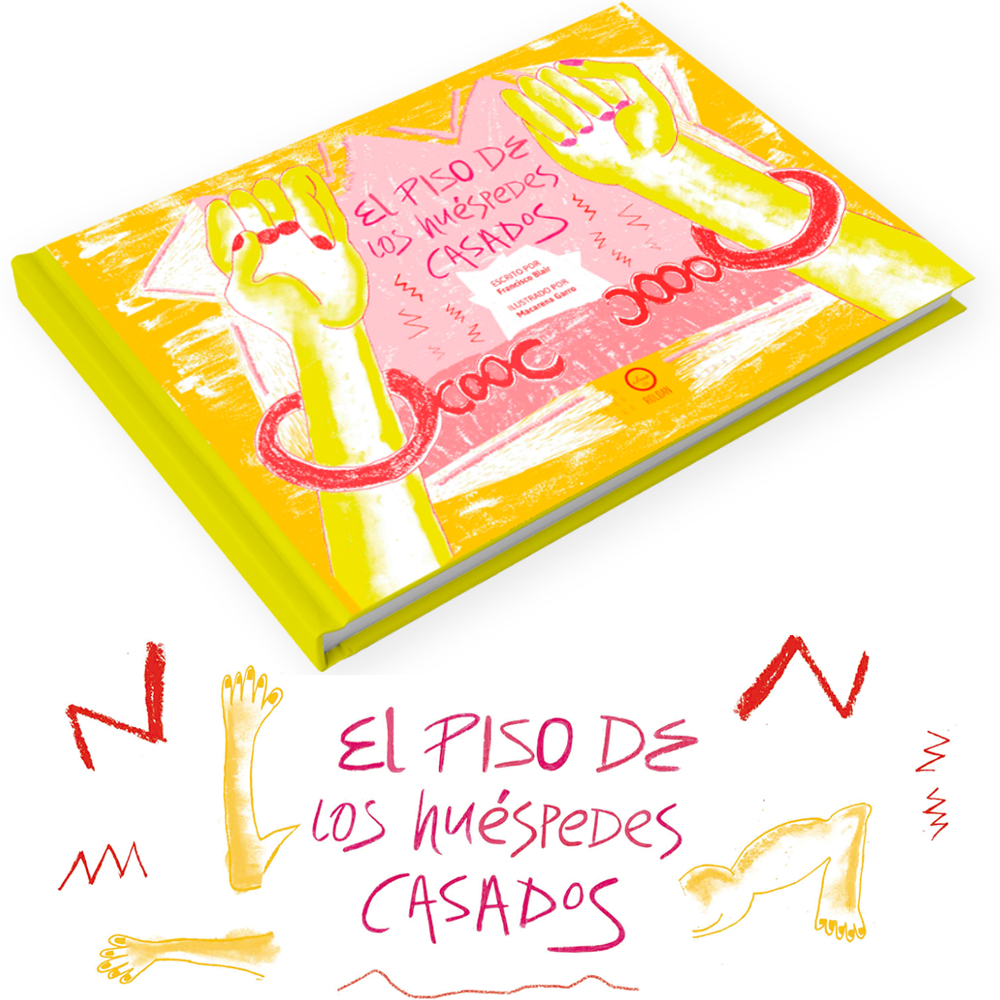 El PISO DE
los huéspedes
CASADOS
ESCRITO POR
Francisco Blair
ILUSTRADO POR
Macarena Garro
ROLDÁN
El PISO DE
los huéspedes
CASADOS